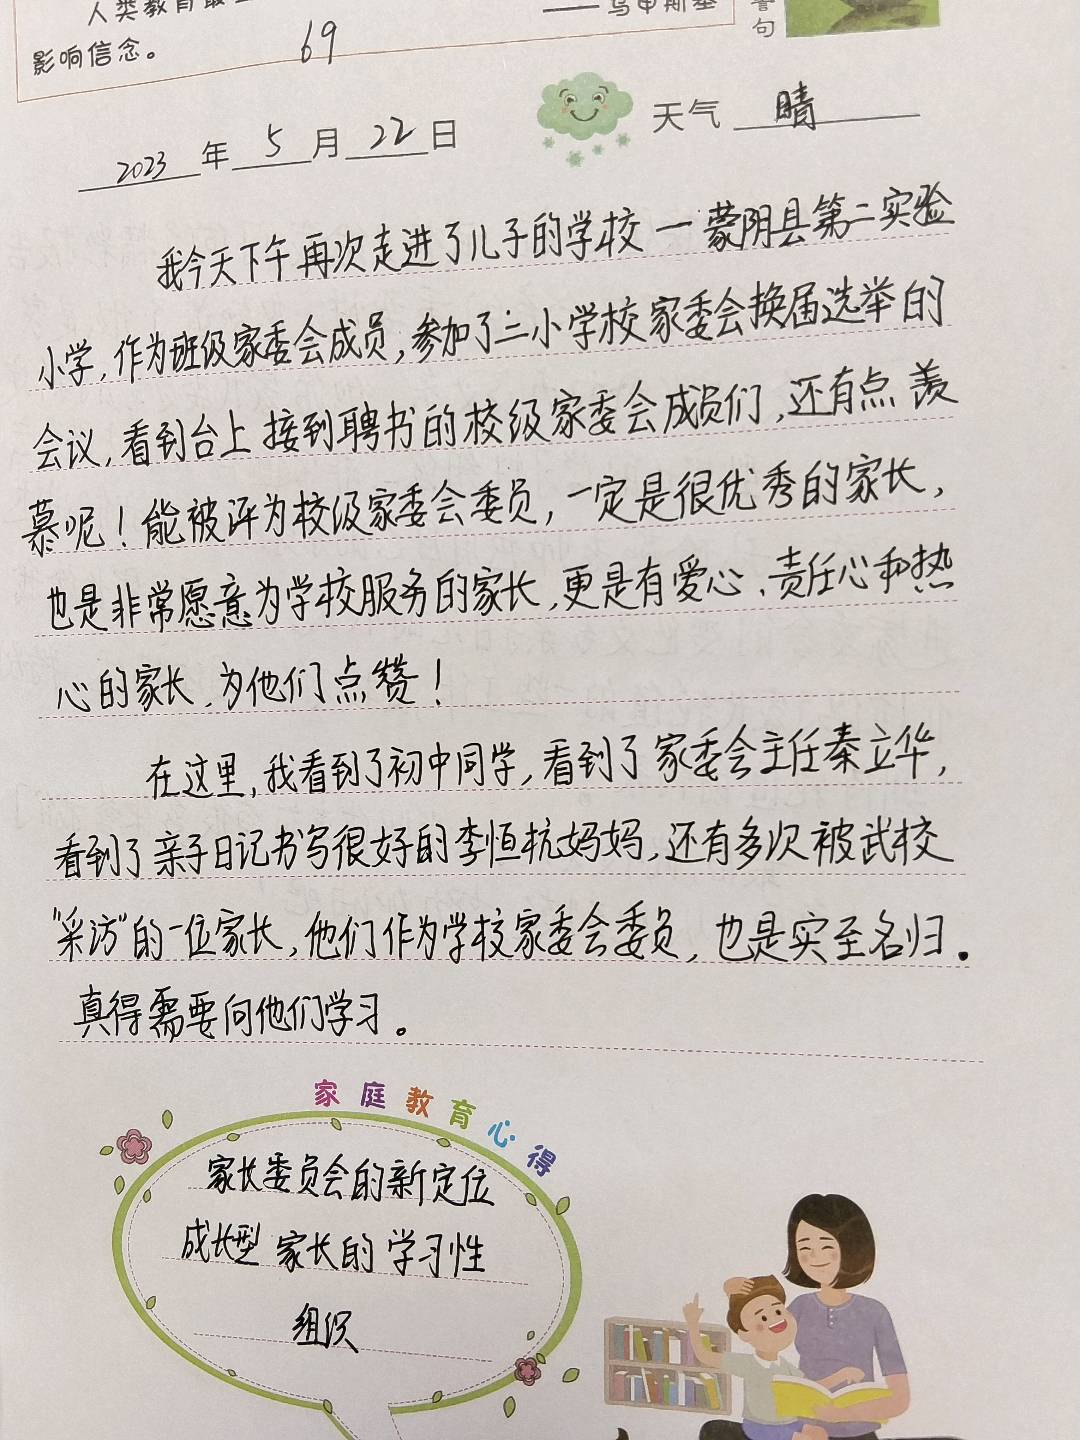 影响信念。
69
2023年5月22日
天气 晴
我今天下午再次走进了儿子的学校一蒙阴县第二实验
小学,作为班级家委会成员,参加了二小学校家委会换届选举的
会议,看到台上接到聘书的校级家委会成员们,还有点羡
慕呢!能被评为校级家委会委员,一定是很优秀的家长,
也是非常愿意为学校服务的家长,更是有爱心、责任心和热
心的家长,为他们点赞!
在这里,我看到了初中同学,看到了家委会主任秦立华,
看到了亲子日记书写很好的李恒杭妈妈,还有多次被武校
“采访”的一位家长,他们作为学校家委会委员,也是实至名归。
真得需要向他们学习。
家庭教育心得
家长委员会的新定位
成长型家长的学习性
组织